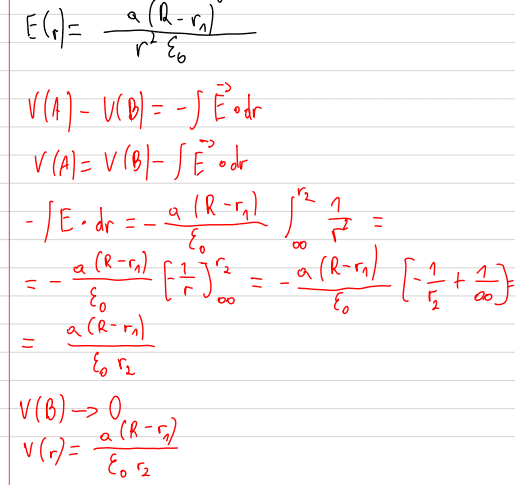 E(r) = a(R-r₁) / r² ε₀
V(A) - V(B) = -∫ E⃗ • dr
V(A) = V(B) - ∫ E⃗ • dr
-∫ E • dr = - a(R-r₁) / ε₀ ∫_∞^r₂ 1/r² =
= - a(R-r₁) / ε₀ [-1/r]_∞^r₂ = - a(R-r₁) / ε₀ [-1/r₂ + 1/∞] =
= a(R-r₁) / ε₀ r₂
V(B) → 0
V(r) = a(R-r₁) / ε₀ r₂